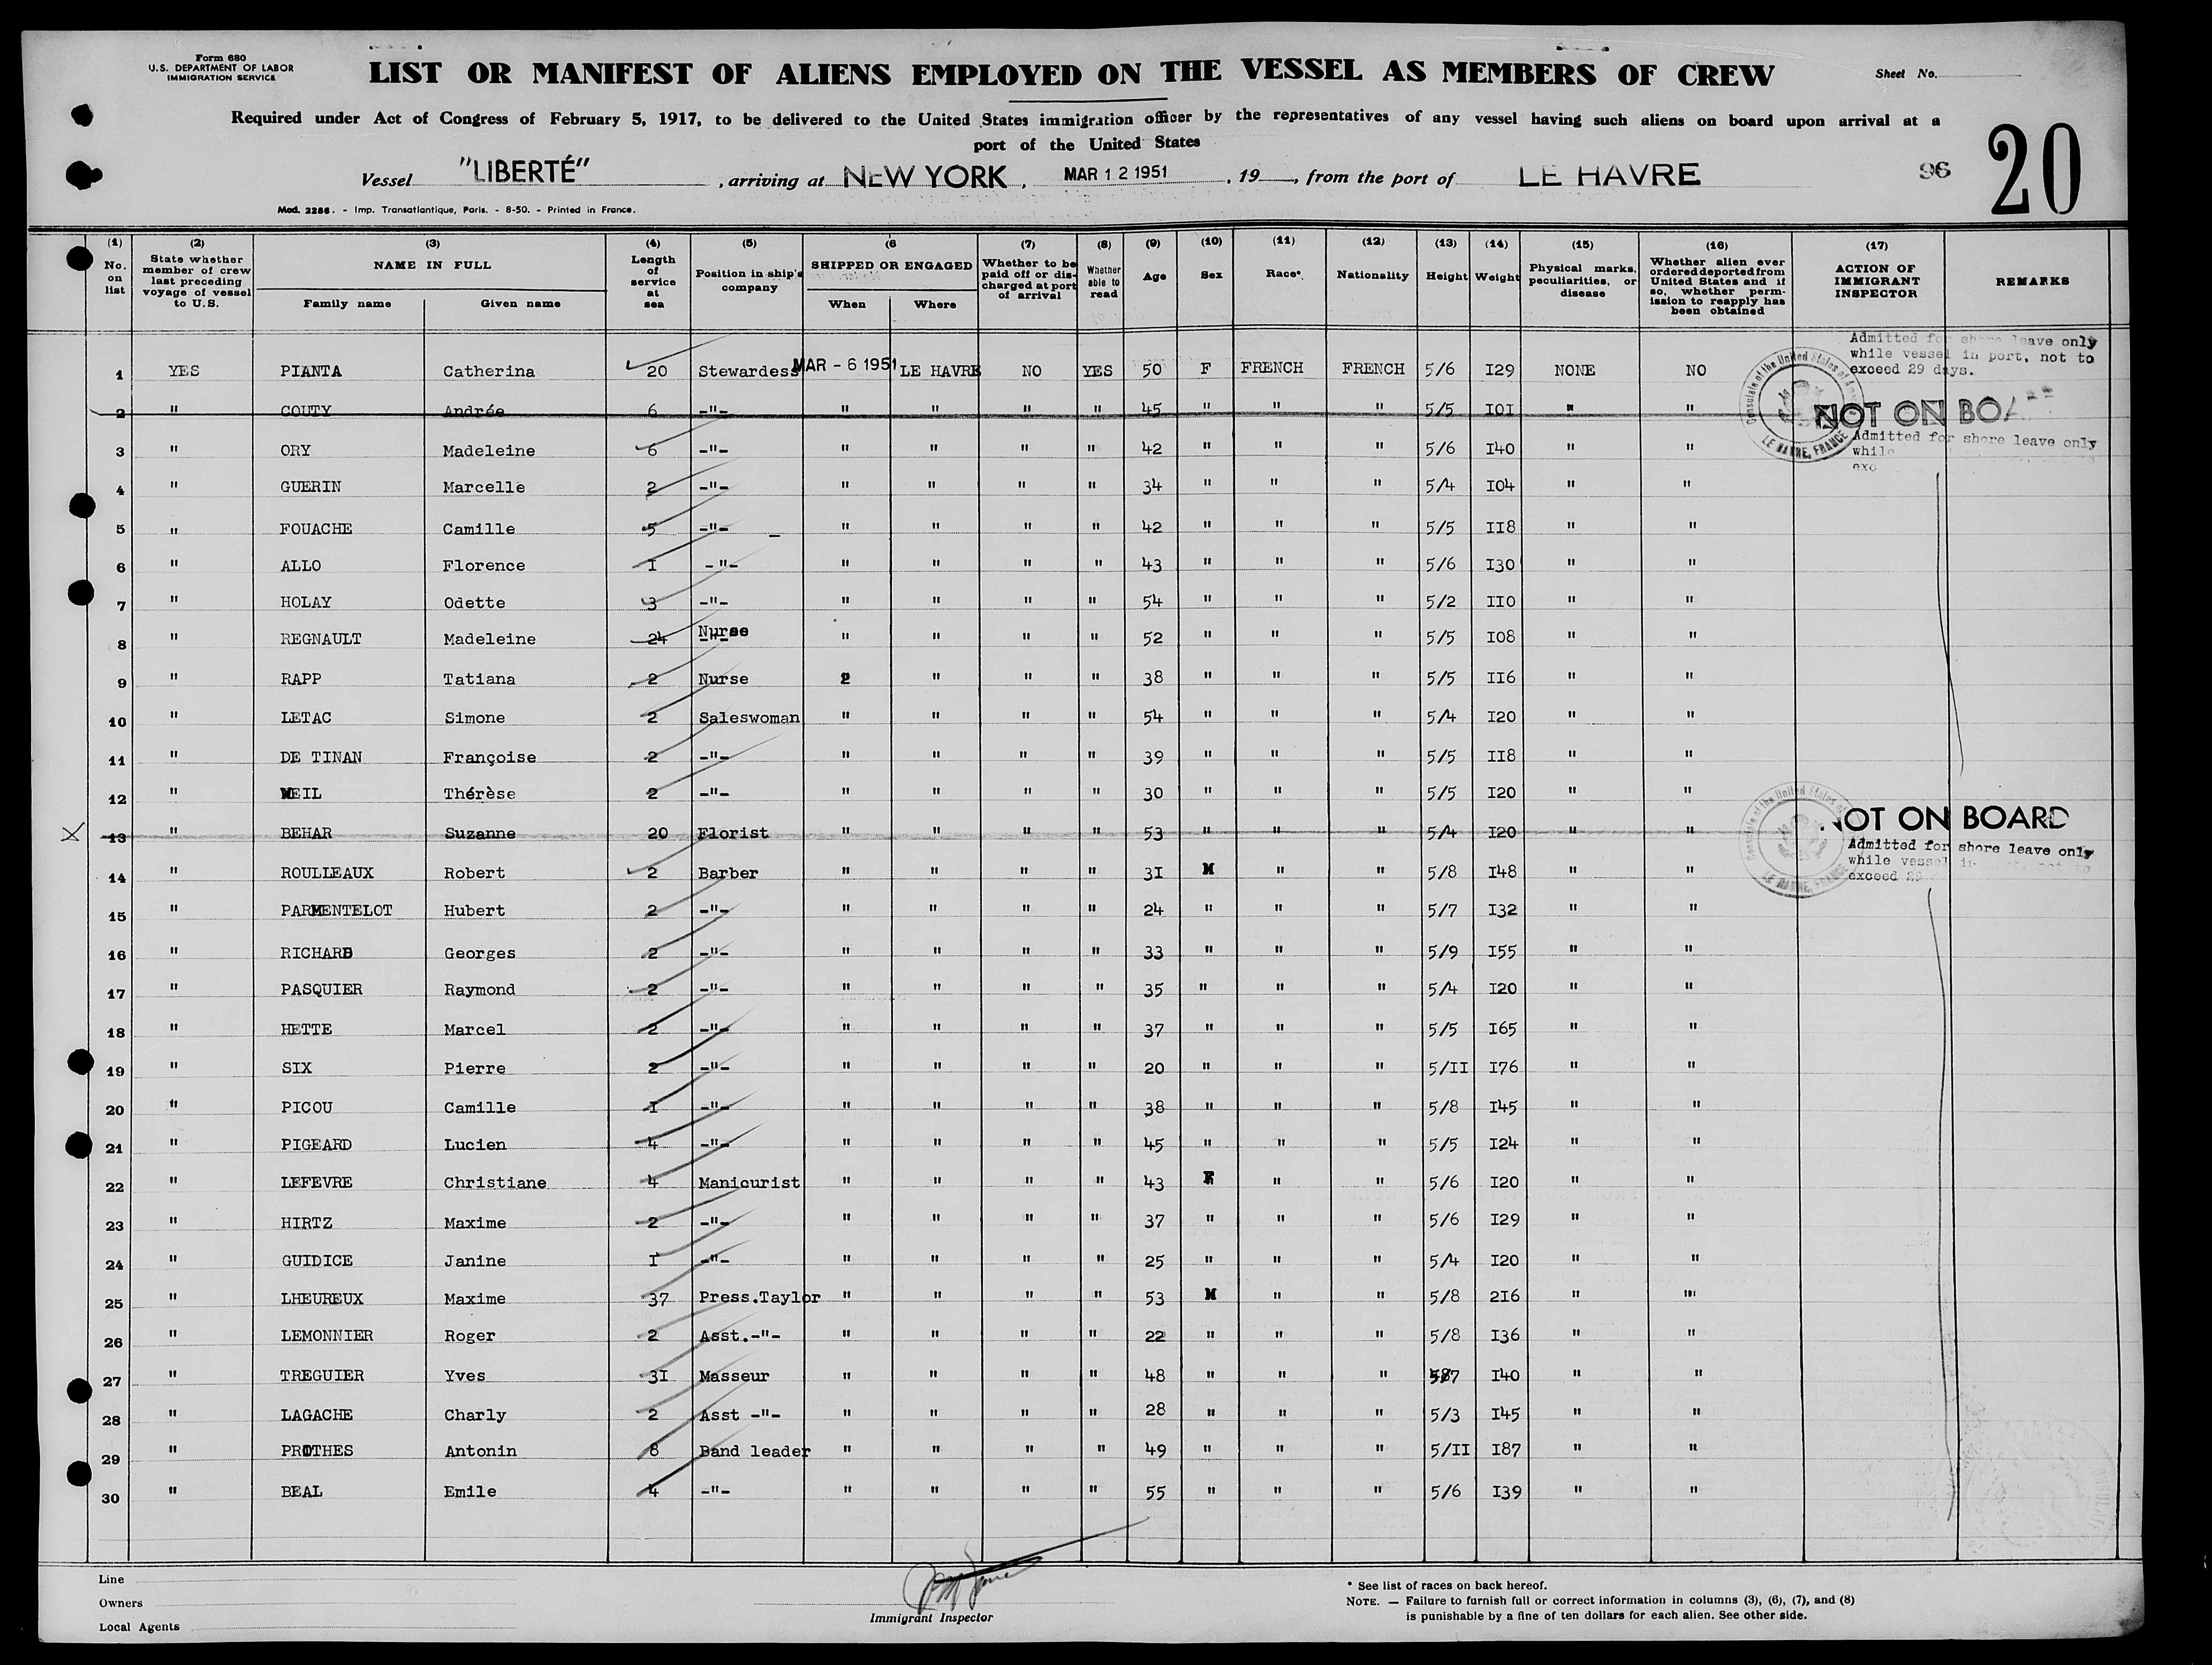 Form 680
U.S. DEPARTMENT OF LABOR
IMMIGRATION SERVICE
LIST OR MANIFEST OF ALIENS EMPLOYED ON THE VESSEL AS MEMBERS OF CREW
Sheet No.
Required under Act of Congress of February 5, 1917, to be delivered to the United States immigration officer by the representatives of any vessel having such aliens on board upon arrival at a
port of the United States
Vessel "LIBERTÉ", arriving at NEW YORK, MAR 12 1951, 19, from the port of LE HAVRE 96 20
Mod. 2286. - Imp. Transatlantique, Paris. - 8-50. - Printed in France.
(1) No. on list (2) State whether member of crew last preceding voyage of vessel to U.S. (3) NAME IN FULL Family name Given name (4) Length of service at sea (5) Position in ship's company (6 SHIPPED OR ENGAGED When Where (7) Whether to be paid off or discharged at port of arrival (8) Whether able to read (9) Age (10) Sex (11) Race* (12) Nationality (13) Height (14) Weight (15) Physical marks, peculiarities, or disease (16) Whether alien ever ordered deported from United States and if so, whether permission to reapply has been obtained (17) ACTION OF IMMIGRANT INSPECTOR REMARKS
Admitted for shore leave only
while vessel in port, not to
exceed 29 days.
1 YES PIANTA Catherina 20 Stewardess MAR - 6 1951 LE HAVRE NO YES 50 F FRENCH FRENCH 5/6 I29 NONE NO
2 " COUTY Andrée 6 -"- " " " " 45 " " " 5/5 IOI " " NOT ON BOA
Consulate of the United States of
LE HAVRE, FRANCE
Admitted for shore leave only
while
3 " ORY Madeleine 6 -"- " " " " 42 " " " 5/6 I40 " "
4 " GUERIN Marcelle 2 -"- " " " " 34 " " " 5/4 I04 " "
5 " FOUACHE Camille 5 -"- " " " " 42 " " " 5/5 II8 " "
6 " ALLO Florence I -"- " " " " 43 " " " 5/6 I30 " "
7 " HOLAY Odette 3 -"- " " " " 54 " " " 5/2 II0 " "
8 " REGNAULT Madeleine 24 Nurse -"- " " " " 52 " " " 5/5 I08 " "
9 " RAPP Tatiana 2 Nurse " " " 38 " " " 5/5 II6 " "
10 " LETAC Simone 2 Saleswoman " " " " 54 " " " 5/4 I20 " "
11 " DE TINAN Françoise 2 -"- " " " " 39 " " " 5/5 II8 " "
12 " WEIL Thérèse 2 -"- " " " " 30 " " " 5/5 I20 " "
13 " BEHAR Suzanne 20 Florist " " " " 53 " " " 5/4 I20 " " NOT ON BOARD
Admitted for shore leave only
while vessel in
exceed 29
14 " ROULLEAUX Robert 2 Barber " " " " 3I M " " 5/8 I48 " "
15 " PARMENTELOT Hubert 2 -"- " " " " 24 " " " 5/7 I32 " "
16 " RICHARD Georges 2 -"- " " " " 33 " " " 5/9 I55 " "
17 " PASQUIER Raymond 2 -"- " " " " 35 " " " 5/4 I20 " "
18 " HETTE Marcel 2 -"- " " " " 37 " " " 5/5 I65 " "
19 " SIX Pierre 2 -"- " " " " 20 " " " 5/II I76 " "
20 " PICOU Camille I -"- " " " " 38 " " " 5/8 I45 " "
21 " PIGEARD Lucien 4 -"- " " " " 45 " " " 5/5 I24 " "
22 " LEFEVRE Christiane 4 Manicurist " " " " 43 F " " 5/6 I20 " "
23 " HIRTZ Maxime 2 -"- " " " " 37 " " " 5/6 I29 " "
24 " GUIDICE Janine I -"- " " " " 25 " " " 5/4 I20 " "
25 " LHEUREUX Maxime 37 Press.Taylor " " " " 53 M " " 5/8 2I6 " "
26 " LEMONNIER Roger 2 Asst.-"- " " " " 22 " " " 5/8 I36 " "
27 " TREGUIER Yves 3I Masseur " " " " 48 " " " I40 " "
28 " LAGACHE Charly 2 Asst -"- " " " " 28 " " " 5/3 I45 " "
29 " PROTHES Antonin 8 Band leader " " " " 49 " " " 5/II I87 " "
30 " BEAL Emile 4 -"- " " " " 55 " " " 5/6 I39 " "
Line
Owners
Local Agents
Immigrant Inspector
* See list of races on back hereof.
NOTE. — Failure to furnish full or correct information in columns (3), (6), (7), and (8)
is punishable by a fine of ten dollars for each alien. See other side.